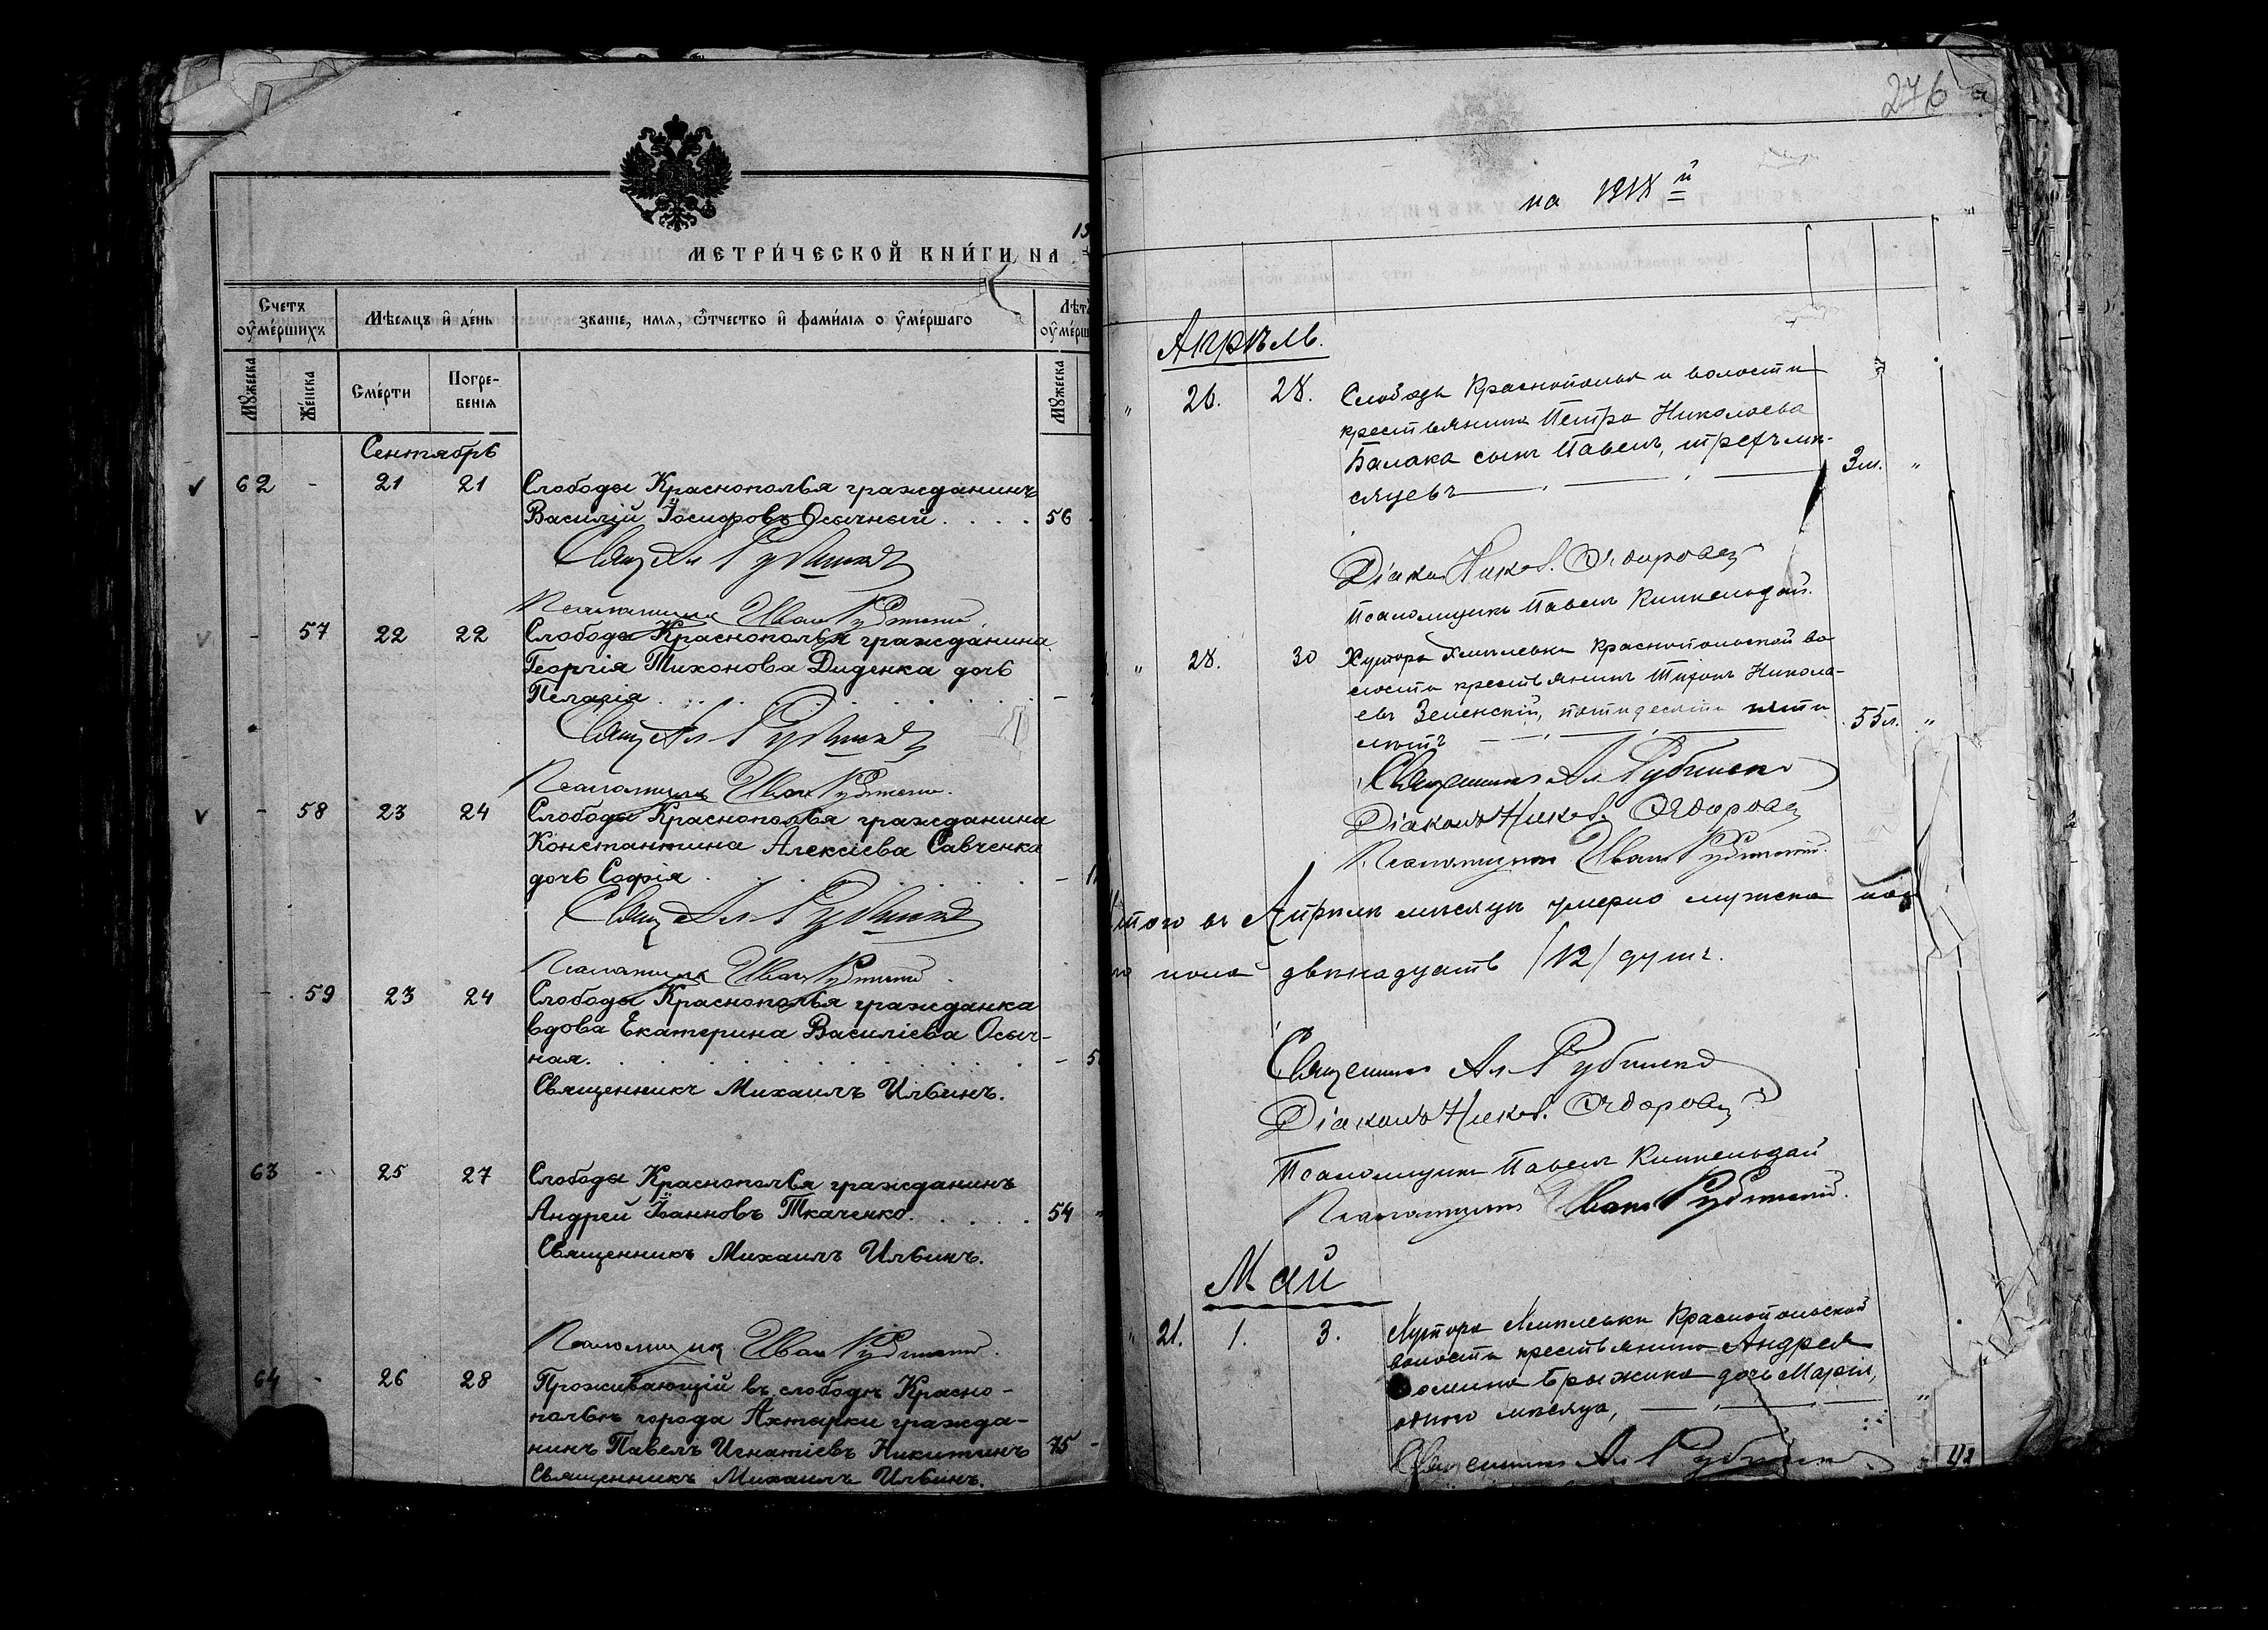 МЕТРИ́ЧЕСКОЙ КНИ́ГИ НА 19
Счетъ оумéршихъ
Мѣсяцъ и́ де́нь
званіе, имя, ѿтчество и́ фами́лія оумéршаго
Лѣтъ оумéрш
Мужеска
Же́нска
Смéрти
Погре-
бенія
Мужеска
Сентябрь
62 - 21 21 Слободы Краснополья гражданинъ
Василій Іосифовъ Осычный . . . . 56
Свящ Ал Рубинскій
Псаломщикъ Иван Рубинский
- 57 22 22 Слободы Краснополья гражданина
Георгія Тихонова Диденка дочь
Пелагія . . . . . . . . . -
Свящ Ал Рубинскій
Псаломщикъ Иван Рубинский.
- 58 23 24 Слободы Краснополья гражданина
Константина Алексіева Савченка
дочь Софія . . . . . . . . -
Свящ Ал Рубинскій
Псаломщикъ Иван Рубинский.
- 59 23 24 Слободы Краснополья гражданка
вдова Екатерина Василіева Осыч-
ная. . . . . . . . . . - 5
Священникъ Михаилъ Ильинъ.
63 - 25 27 Слободы Краснополья гражданинъ
Андрей Іоанновъ Ткаченко. . . . . 54 "
Священникъ Михаилъ Ильинъ.
Псаломщик Иван Рубинский.
64 - 26 28 Проживающій въ слободѣ Красно-
польѣ города Ахтырки гражда-
нинъ Павелъ Игнатіевъ Никитинъ 75 -
Священникъ Михаилъ Ильинъ.
276
на 1918й
Апрѣль.
" 26. 28. Слободы Краснополья и волости
крестьянина Петра Николаева
Балака сынъ Павелъ, трехъ мѣ-
сяцевъ 3м. "
Діаконъ Никол.
Псаломщикъ Павелъ
" 28. 30 Хутора Краснопольской во-
лости крестьянинъ Тихонъ Никола-
евъ Зеленскій, пятидесяти пяти
лѣтъ 55л. "
Священникъ Ал Рубинскій
Діаконъ Никол.
Псаломщикъ Иван Рубинский.
Итого въ Апрѣлѣ мѣсяцѣ умерло мужска пола
пола двѣнадцать /12/ душъ.
Священникъ Ал Рубинскій
Діаконъ Никол.
Псаломщикъ Павелъ
Псаломщикъ Иван Рубинский.
Май
" 21. 1. 3. Хутора Краснопольской
волости крестьянина Андрея
Брыжика дочь Марія,
одного мѣсяца, "
Священникъ Ал Рубинскій